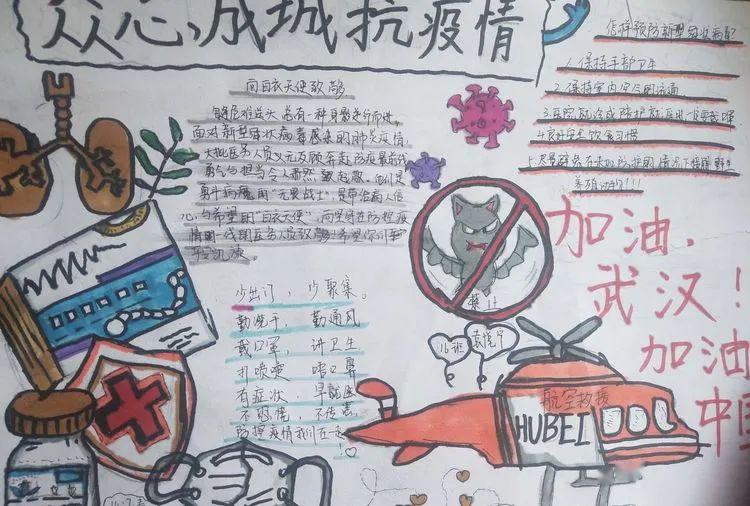 众心成城抗疫情
向白衣天使致敬
危难关头总有一种身影逆行而进,
面对新型冠状病毒感染的肺炎疫情,
大批医务人员义无反顾奔赴防疫最前线
勇气与担当令人肃然起敬,他们是
勇斗病魔的"无畏战士",是带给病人信
心与希望的"白衣天使",向坚守在防控疫
情第一线的医务人员致敬!希望你们
平安凯旋
少出门,少聚集。
勤洗手,勤通风
戴口罩,讲卫生
打喷嚏,
有症状,早就医
不恐慌,不传谣
防控疫情我们在一起
!
怎样预防新型冠状病毒
1.保持手部卫生
2.保持室内空气的流通
3.医院就诊或陪护就医时一定要戴
4.良好安全饮食习惯
5.尽量避免在未加防护的情况下接触野生
养殖动物!!!
禁止
加油,
武汉!
加油
中国
16班
航空救援
HUBEI